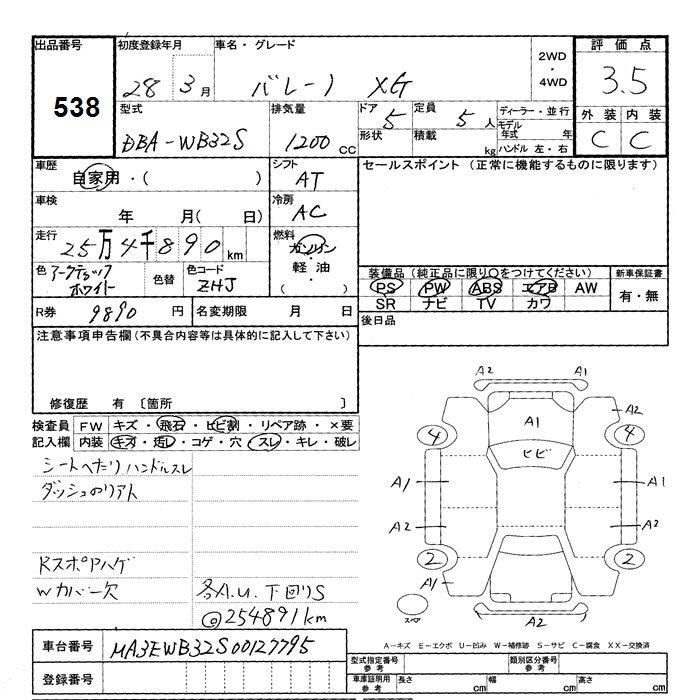 出品番号 初度登録年月 車名・グレード 2WD・4WD 評価点
538 28 3月 バレーノ XG 3.5
型式 排気量 ドア 5 定員 5人 ディーラー・並行 外装 内装
DBA-WB32S 1200 CC 形状 積載 kg モデル年式 年 C C
ハンドル 左・右
車歴 シフト セールスポイント (正常に機能するものに限ります)
自家用・( ) AT
車検 冷房
年 月( 日) AC
走行 燃料
25万4千890km ガソリン・軽油・( )
色 アークティックホワイト 色替 色コード ZHJ
装備品 (純正品に限り○をつけてください) 新車保証書
PS PW ABS エアB AW 有・無
SR ナビ TV カワ
R券 9890円 名変期限 月 日 後日品
注意事項申告欄(不具合内容等は具体的に記入して下さい)
修復歴 有 〔箇所 〕
検査員 FW キズ・飛石・ヒビ割・リペア跡・×要
記入欄 内装 キズ・汚レ・コゲ・穴・スレ・キレ・破レ
シートヘたり ハンドルスレ
ダッシュのリアト
RスポPハゲ
Wカバー欠 各A.U. 下回りS
@254891km
A2 A1
A1 A2
4 4
ヒビ
A1 A1
A2 A2
2 2
A1
スペア A2
A-キズ E-エクボ U-凹み W-補修跡 S-サビ C-腐食 XX-交換済
車台番号 MA3EWB32S00127795
型式指定番号 参考 類別区分番号 参考
登録番号 車庫証明用 参考 長さ cm 幅 cm 高さ cm